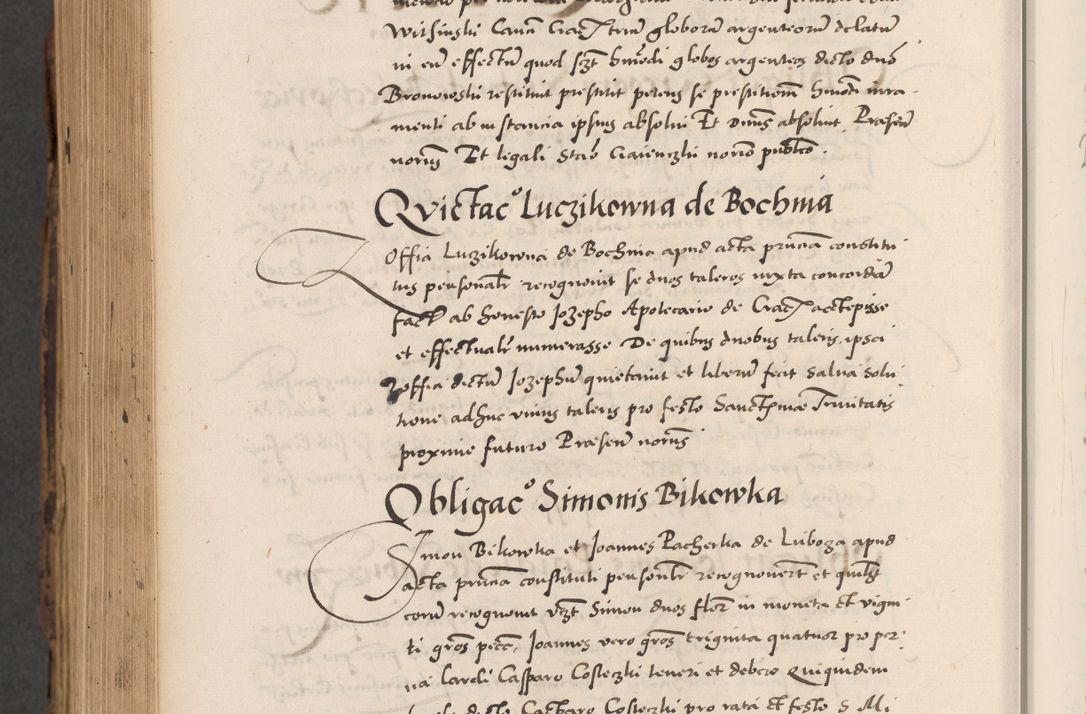 Witsinski Canon Crac trium globorum argenteorum delatum
in eum effectum quod szt hmodi globos argenteos dicto dno
Bronowski restituit prestitit petens se prestitionem hmodi iura
menti ab instancia ipsius absolui Et Dnus absoluit Præsen
norius Et legali Stao Gaienczki norio publico
Qvietaco Luczikowna de Bochnia
Zoffia Luczikowna de Bochnia apud acta prncia constitu
tus personalr recognouit se duos taleros iuxta concordia
fact ab honesto Jozepho Apotecario de Crac acceptisse
et effectualr numerasse De quibus duobus taleris ipsa
Zoffia dictum Jozephum quietauit et liberum fecit salua solu
tione adhuc unius taleris pro festo Sanctissimæ Trinitatis
proxime futuro Præsen norius
Obligaco Simonis Bikowka
Simon Bikowka et Joannes Pacherka de Luboza apud
acta prncia constituti personlr recognouert et quilibt
eorum recognouit vzt Simon duos flor in moneta et vigin
ti gros pecc, Joannes vero gros triginta quatuor pro per
na lardi Casparo Costeczki teneri et debere Quiquidem
dicto Casparo Costeczki pro rata et festo S Mi